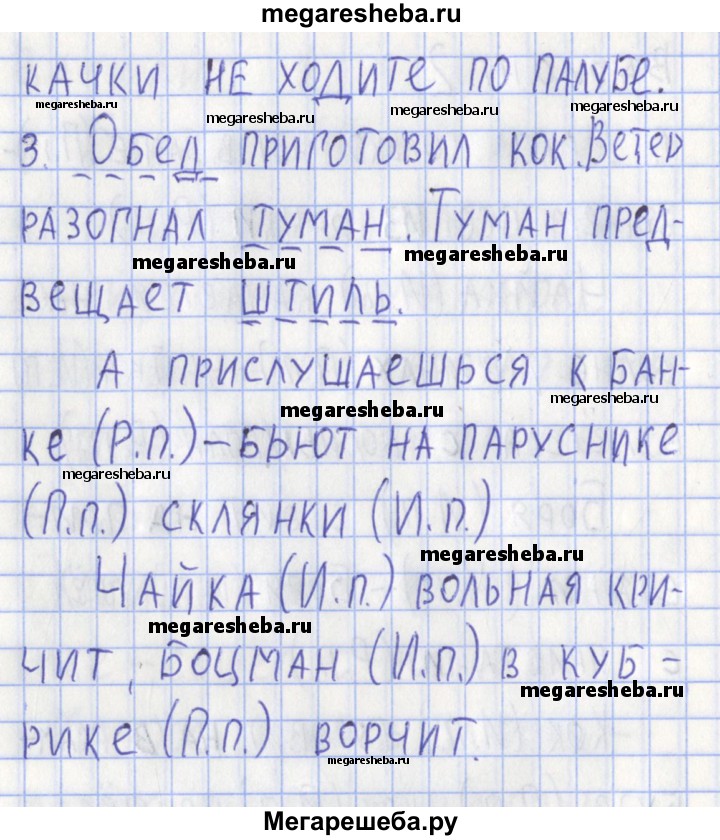 megaresheba.ru
КАЧКИ НЕ ХОДИТЕ ПО ПАЛУБЕ.
megaresheba.ru megaresheba.ru megaresheba.ru megaresheba.ru
3. ОБЕД ПРИГОТОВИЛ КОК. ВЕТЕР
РАЗОГНАЛ ТУМАН. ТУМАН ПРЕД-
megaresheba.ru megaresheba.ru
ВЕЩАЕТ ШТИЛЬ.
А ПРИСЛУШАЕШЬСЯ К БАН-
megaresheba.ru megaresheba.ru
КЕ (Р.П.) – БЬЮТ НА ПАРУСНИКЕ
megaresheba.ru
(П.П.) СКЛЯНКИ (И.П.)
megaresheba.ru
ЧАЙКА (И.П.) ВОЛЬНАЯ КРИ-
megaresheba.ru
ЧИТ, БОЦМАН (И.П.) В КУБ =
megaresheba.ru
РИКЕ (П.П.) ВОРЧИТ.
megaresheba.ru
Мегарешеба.ру